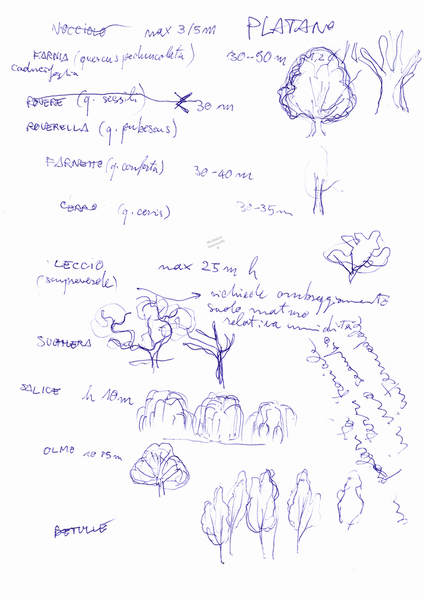 NOCCIOLO max 3/5m PLATANO
FARNIA (quercus peduncolata) 30-50 m
caducifoglia
ROVERE (q. sessili) 30 m
ROVERELLA (q. pubescens)
FARNETTO (q. conferta) 30-40 m
CERRO (q. cerris) 30-35m
LECCIO max 25m h
(sempreverde)
richiede ombreggiamento
suolo maturo
relativa umidità
SUGHERA
SALICE h 10m
OLMO 10 15m
BETULLE